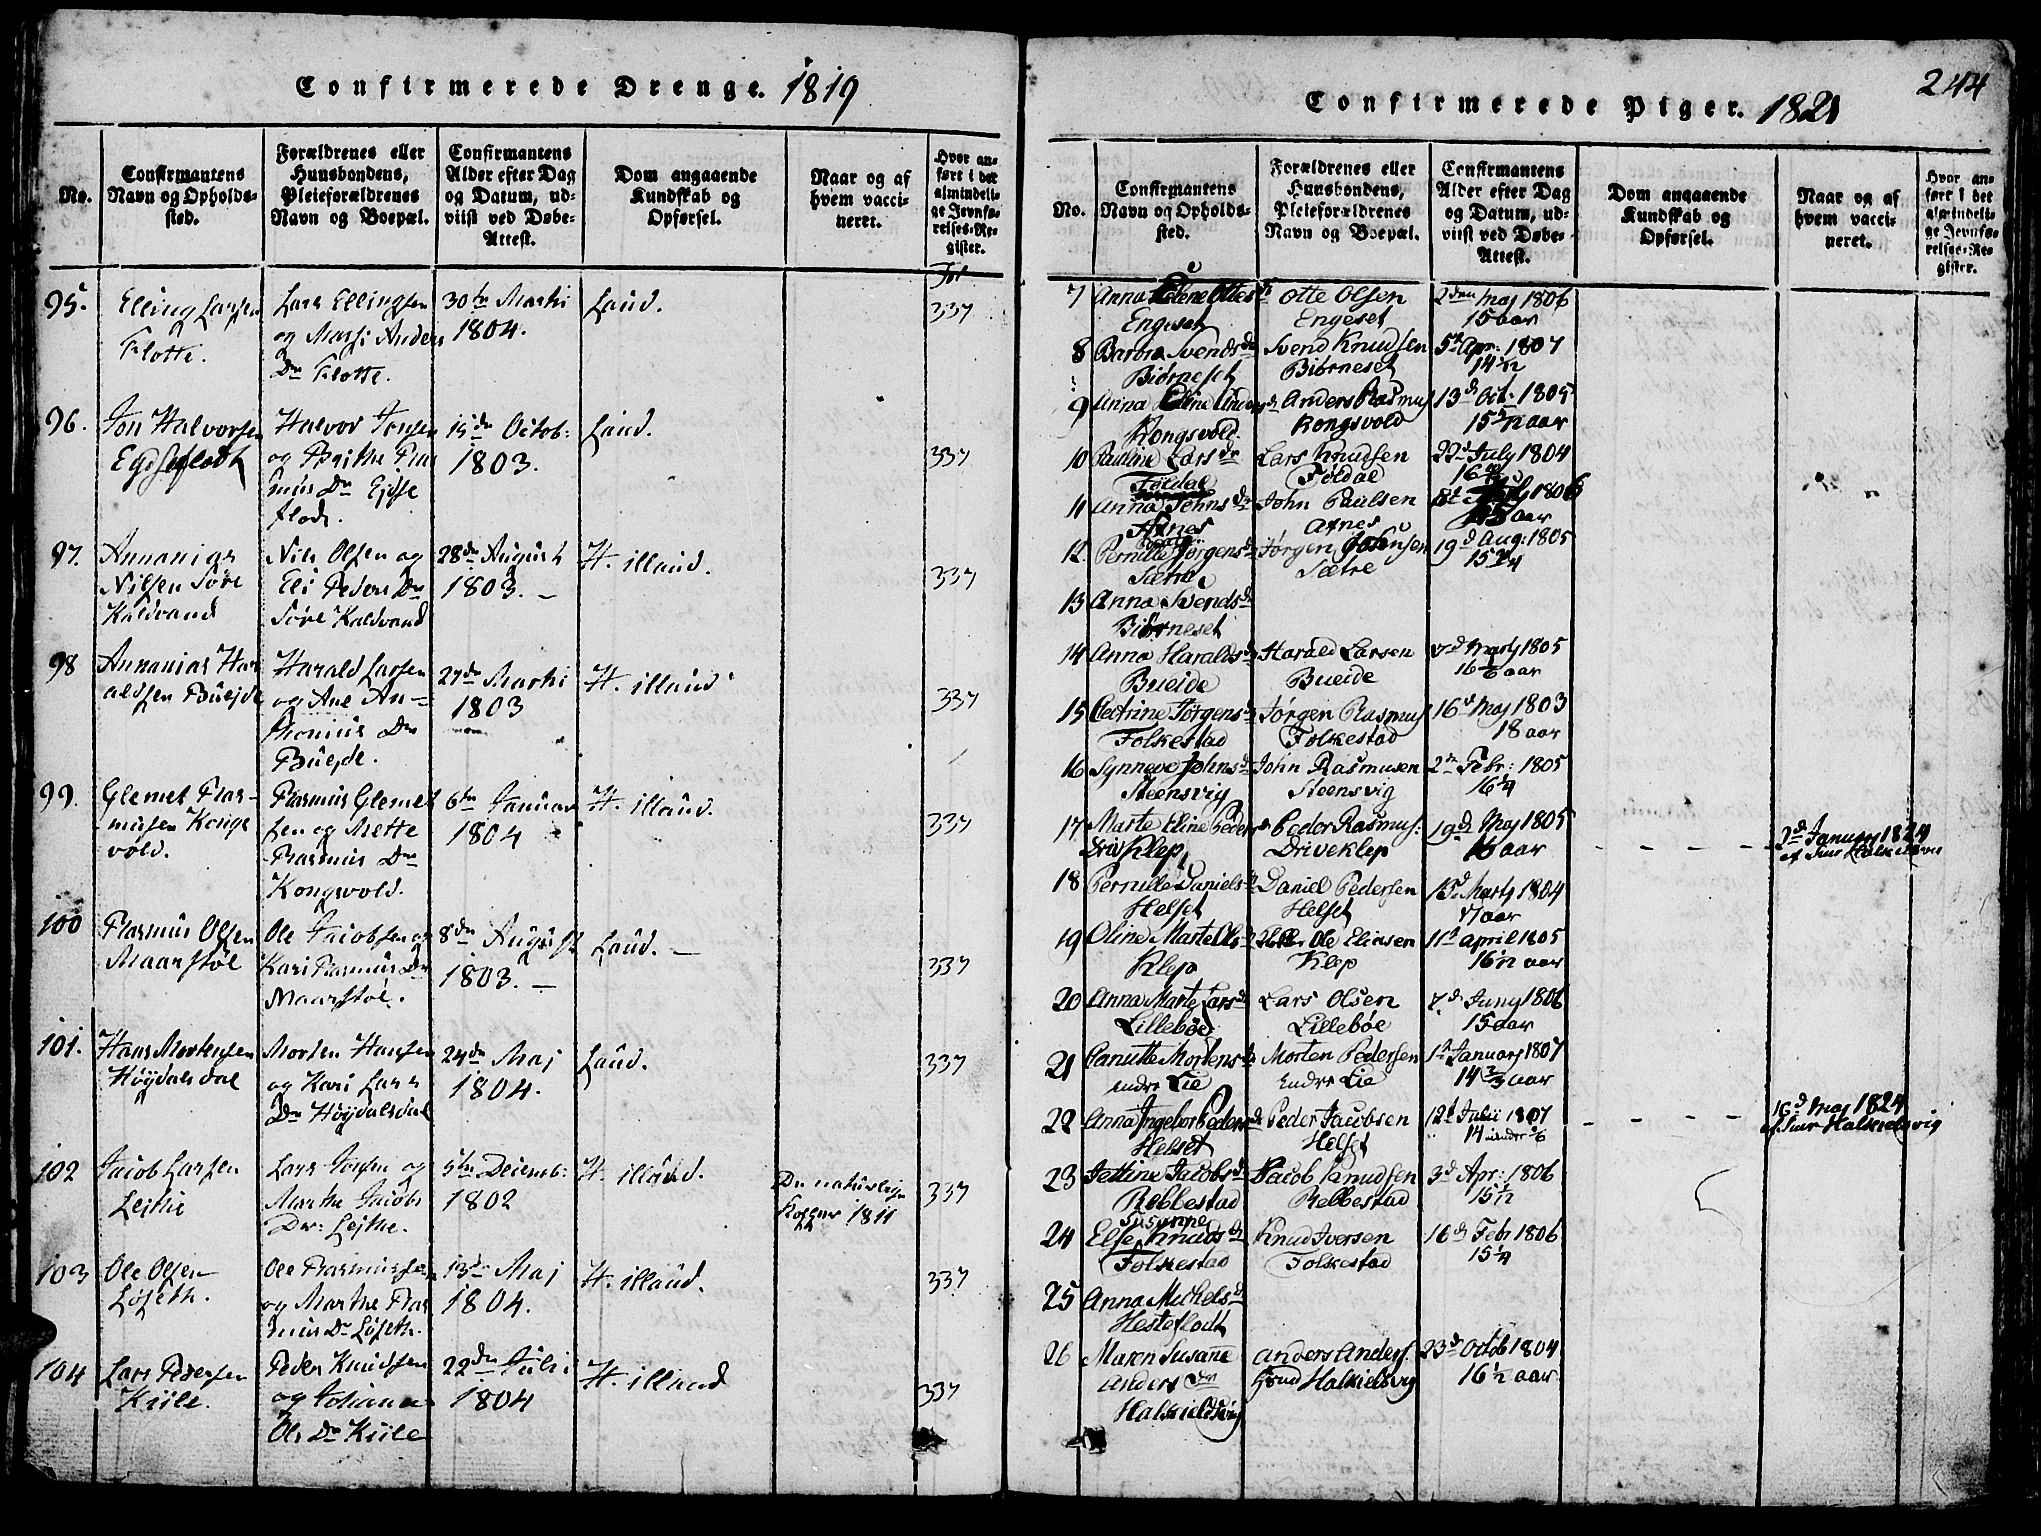 Confirmerede Drenge. 1819
No.
Confirmantens
Navn og Opholds-
sted.
Forældrenes eller
Huusbondens,
Pleieforældrenes
Navn og Boepæl.
Confirmantens
Alder efter Dag
og Datum, ud-
viist ved Døbe-
Attest.
Dom angaaende
Kundskab og
Opførsel.
Naar og af
hvem vacci-
neret.
Hvor an-
ført i det
almindeli-
ge Jevnfø-
relses-Re-
gister.
Fol
95. Elling Larsen
Flotte.
Lars Ellingsen
og Anders
Dr Flotte.
30te Martii
1804.
Laud.
337
96. Jon Halvorsen
Halvor Jonsen
og Berthe Ras
mus Dr Ejdse
flode.
15de Octob:
1803.
Laud.
337
97. Annanias
Nilsen Søre
Kaldvand
Nils Olsen og
Eli Peders Dr
Søre Kaldvand
28de August
1803. –
H. illaud.
337
98 Annanias Har
aldsen Buejde
Harald Larsen
og Ane An-
thonius Dr
Buejde.
27de Martii
1803
H. illaud
337
99. Glemet Ras-
musen Kongs
vold.
Rasmus Glemet
sen og Mette
Rasmus Dr
Kongsvold.
6te Januar
1804
H. illaud.
337
100 Rasmus Olsen
Maarstøl
Ole Jacobsen og
Kari Rasmus Dr
Maarstøl.
8de August
1803. –
Laud. –
337
101. Hans Mortensen
Høydalsdal
Morten Hansen
og Kari Lars
Dr Høydalsdal
24de Maj
1804.
Laud.
337
102 Jacob Larsen
Lejthe
Lars Jonsen og
Marthe Jacobs
Dr: Lejthe.
5te Decemb:
1802
H. illaud.
De naturlige
Kopper 1811
337
103 Ole Olsen
Løseth.
Ole Rasmussen
og Marthe Ras
mus Dr Løseth.
13de Maj
1804.
H. illaud.
337
104 Lars Pedersen
Kiile.
Peder Knudsen
og Johanne
Ols Dr Kiile
22de Julii
1804
H. illaud
337
244
Confirmerede Piger. 1821
No.
Confirmantens
Navn og Opholds-
sted.
Forældrenes eller
Huusbondens,
Pleieforældrenes
Navn og Boepæl.
Confirmantens
Alder efter Dag
og Datum, ud-
viist ved Døbe-
Attest.
Dom angaaende
Kundskab og
Opførsel.
Naar og af
hvem vacci-
neret.
Hvor an-
ført i det
almindeli-
ge Jevnfø-
relses-Re-
gister.
7 Anna Elene Ottes Dr
Engeset
Otte Olsen
Engeset
2den Maj 1806
15 aar
8 Barbra Svends Dr
Biørneset
Svend Knudsen
Biørneset
5te Apr: 1807
14 1/12
9 Anna Eline Anders Dr
Kongsvold.
Anders Rasmus
Kongsvold
13d Oct: 1805
15 7/12 aar
10 Pauline Lars Dr
Føldal
Lars Knudsen
Føldal
22d July 1804
11 Anna Johns Dr
Aasnes
John Paulsen
1806
aar
12. Pernille Jørgens Dr
Sætre
Jørgen
Sætre
19d Aug: 1805
15 3/4
13 Anna Svends Dr
Biørneset
14 Anna Haralds Dr
Bueide
Harald Larsen
Bueide
Marts 1805
16 1/6 aar
15 Cectrine Jørgens Dr
Folkestad
Jørgen Rasmus
Folkestad
16d Maj 1803
18 aar
16 Synneve Johns Dr
Steensvig
John Rasmusen
Steensvig
2den Febr: 1805
16 1/4
17 Marte Eline Peders Dr
Driv Klep
Peder Rasmus:
Driveklep
19d Maj 1805
16 aar
– – – –
Januarj 1824
af
18 Pernille Daniels Dr
Helset
Daniel Pedersen
Helset
15d Marts 1804
17 aar
19 Oline Marte Ols Dr
Klep
Ole Eliasen
Klep
11t april 1805
16 1/12 aar
20 Anna Marte Lars Dr
Lillebøe
Lars Olsen
Lillebøe
7d Juny 1806
15 aar
21 Canutte Mortens Dr
Endre Lie
Morten Pedersen
Endre Lie
1t Januarj 1807
14 2/3 aar
22 Anna Ingebor Peders Dr
Helset
Peder Jacobsen
Helset
12t Julii 1807
– – – –
16d Maj 1824
Halkieldsvig
23 Jettine Jacobs Dr
Rebbestad
Jacob Knudsen
Rebbestad
3d Apr: 1806
15 1/12
24 Susanne
Else Knuds Dr
Folkestad
Knud Iversen
Folkestad
16d Febr 1806
15 1/4
25 Anna Michels Dr
Hesteflodt
26 Maren Susañe
Anders Dr
Halkieldsvig
Anders Anders.
Halkieldsvig
23d Octob 1804
16 1/2 aar